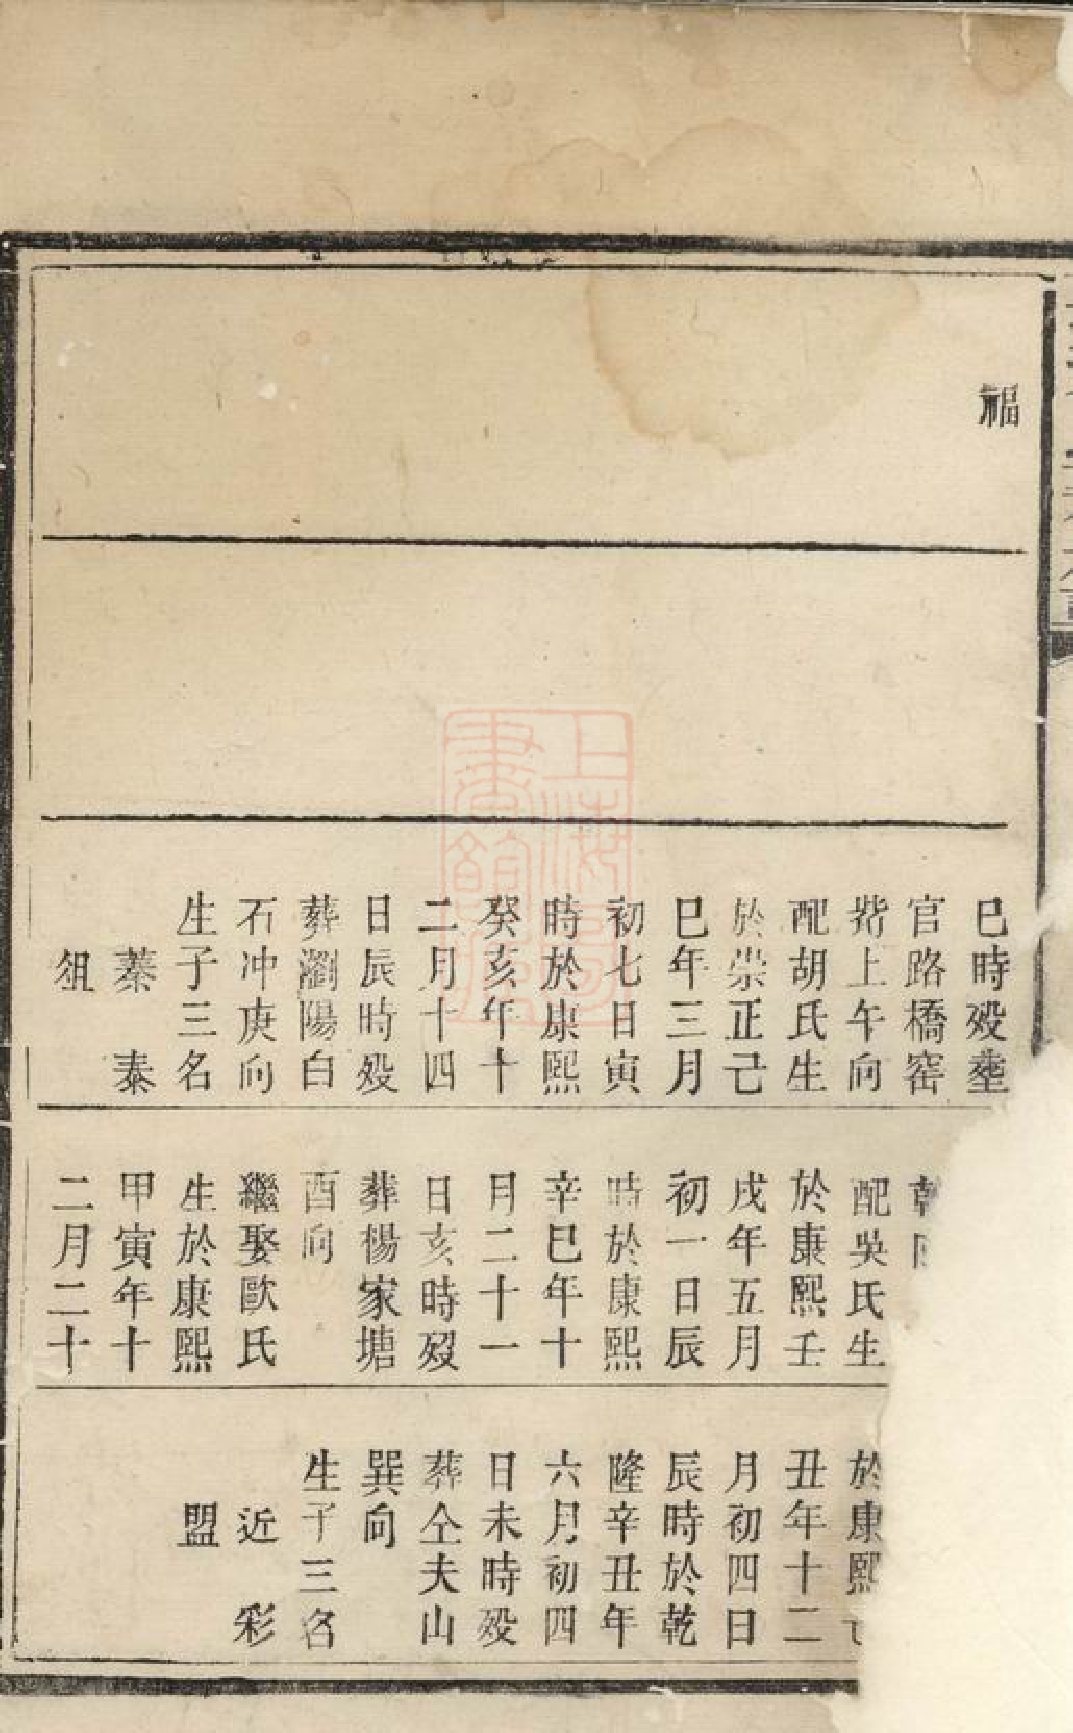 福
巳時歿塟
官路橋窑
塝上午向
配胡氏生
於崇正己
巳年三月
初七日寅
時於康熙
癸亥年十
二月十四
日辰時歿
葬瀏陽白
石冲庚向
生子三名
蓁 泰
俎
配吳氏生
於康熙壬
戌年五月
初一日辰
時於康熙
辛巳年十
月二十一
日亥時歿
葬楊家塘
酉向
繼娶歐氏
生於康熙
甲寅年十
二月二十
於康熙
丑年十二
月初四日
辰時於乾
隆辛丑年
六月初四
日未時歿
葬仝夫山
巽向
生子三名
近 彩
盟
上海圖書館藏